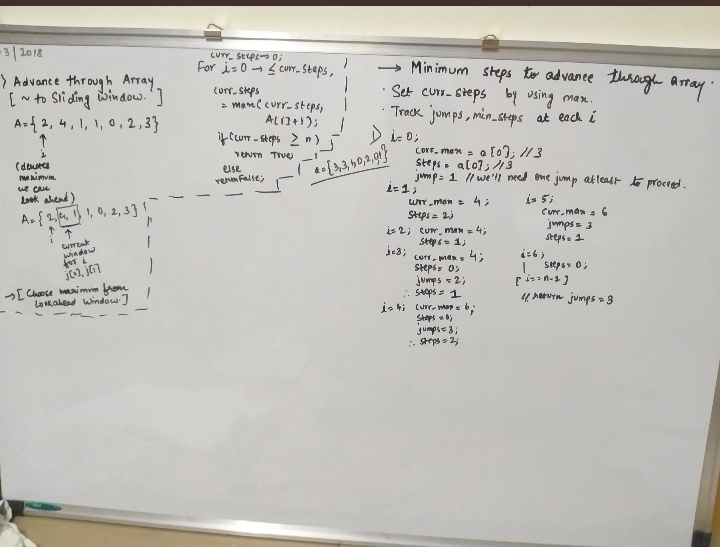 03/2018
) Advance through Array
[ ~ to Sliding Window. ]
A={ 2, 4, 1, 1, 0, 2, 3}
↑
i
(denotes
maximum
we can
look ahead)
A={ 2, 4, 1, 1, 0, 2, 3}
↑ ↑
i current
window
for i
j[0], j[1]
→[ Choose maximum from
Lookahead Window.]
curr_steps→0;
For i=0 → ≤ curr_steps,
curr_steps
= max( curr_steps,
A[i]+i);
if (curr_steps ≥ n)
return True;
else
return False;
→ Minimum steps to advance through array.
· Set curr_steps by using max.
· Track jumps, min_steps at each i
a={3,3,1,0,2,0,1}
i=0;
curr_max = a[0]; //3
steps = a[0]; //3
jump = 1 // we'll need one jump atleast to proceed.
i=1;
curr_max = 4;
steps = 2;
i=2; curr_max = 4;
steps = 1;
i=3; curr_max = 4;
steps = 0;
jumps = 2;
∴ steps = 1
i=4; curr_max = 6;
steps = 0;
jumps = 3;
∴ steps = 2;
i=5;
curr_max = 6
jumps = 3
steps = 1
i=6;
| steps = 0;
[ i == n-1 ]
// return jumps = 3